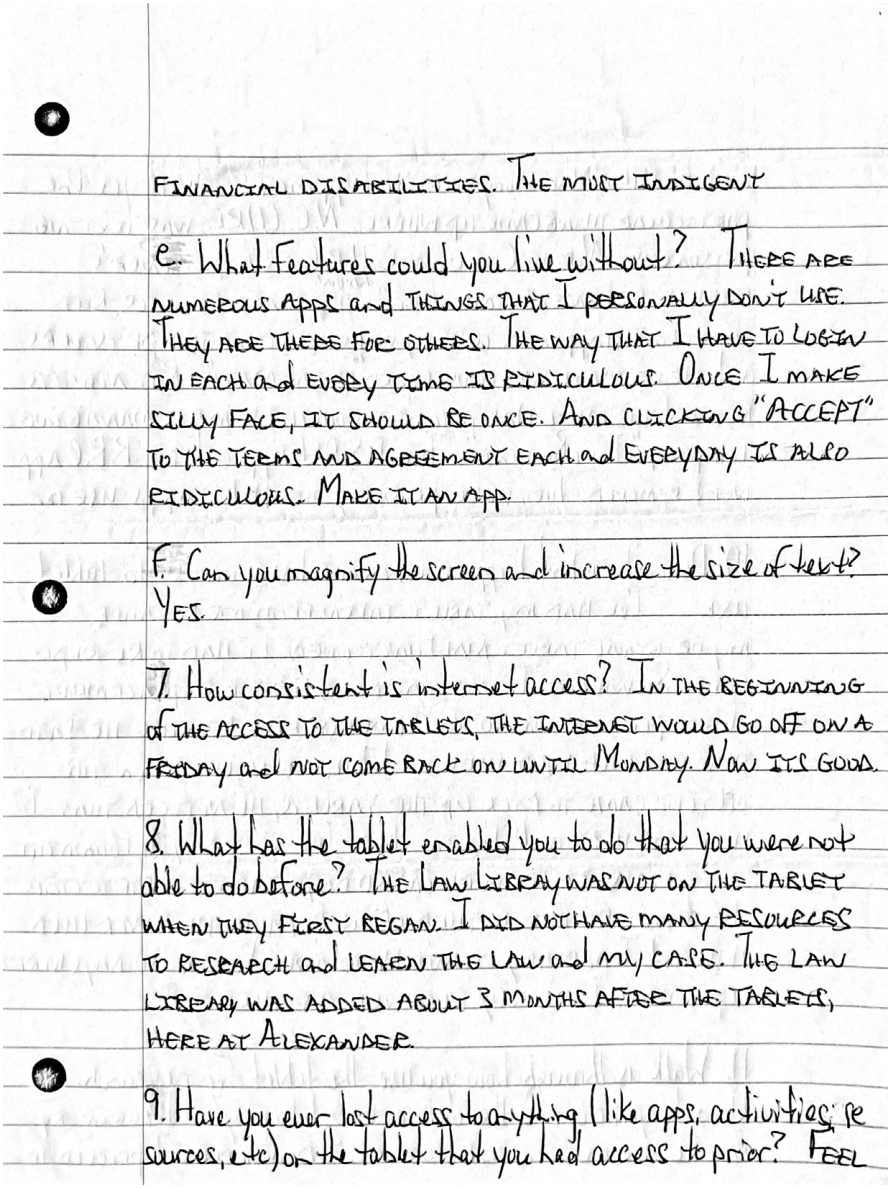 FINANCIAL DISABILITIES. THE MOST INDIGENT
e. What features could you live without? THERE ARE
NUMEROUS APPS and THINGS THAT I PERSONALLY DON'T USE.
THEY ARE THERE FOR OTHERS. THE WAY THAT I HAVE TO LOGIN
IN EACH and EVERY TIME IS RIDICULOUS. ONCE I MAKE
SILLY FACE, IT SHOULD BE ONCE. AND CLICKING "ACCEPT"
TO THE TERMS AND AGREEMENT EACH and EVERYDAY IS ALSO
RIDICULOUS. MAKE IT AN APP.
f. Can you magnify the screen and increase the size of text?
YES.
7. How consistent is internet access? IN THE BEGINNING
of THE ACCESS TO THE TABLETS, THE INTERNET WOULD GO OFF ON A
FRIDAY and NOT COME BACK ON UNTIL MONDAY. NOW ITS GOOD.
8. What has the tablet enabled you to do that you were not
able to do before? THE LAW LIBRAY WAS NOT ON THE TABLET
WHEN THEY FIRST BEGAN. I DID NOT HAVE MANY RESOURCES
TO RESEARCH and LEARN THE LAW and MY CASE. THE LAW
LIBRARY WAS ADDED ABOUT 3 MONTHS AFTER THE TABLETS,
HERE AT ALEXANDER.
9. Have you ever lost access to anything (like apps, activities, re
sources, etc) on the tablet that you had access to prior? FEEL